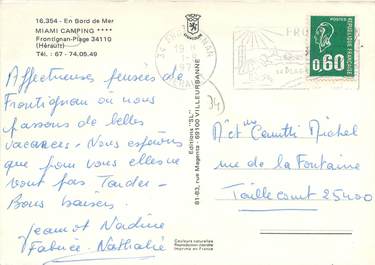 16.354 - En Bord de Mer
MIAMI CAMPING ****
Frontignan-Plage 34110
(Hérault)
Tél. : 67 - 74.05.49
34 FRONTIGNAN
19 H
HERAULT
0,60
POSTES
REPUBLIQUE FRANÇAISE
Affectueuses pensées de
Frontignan où nous
passons de belles
vacances. Nous espérons
que pour vous elles ne
vont pas tarder -
Bons baisers.
Jeanot Nadine
Fabrice - Nathalie
Editions "SL"
81-83, rue Magenta - 69100 VILLEURBANNE
34
M et Me Michel
rue de la Fontaine
Taillecourt 25400
Couleurs naturelles
Reproduction interdite
Imprimé en France